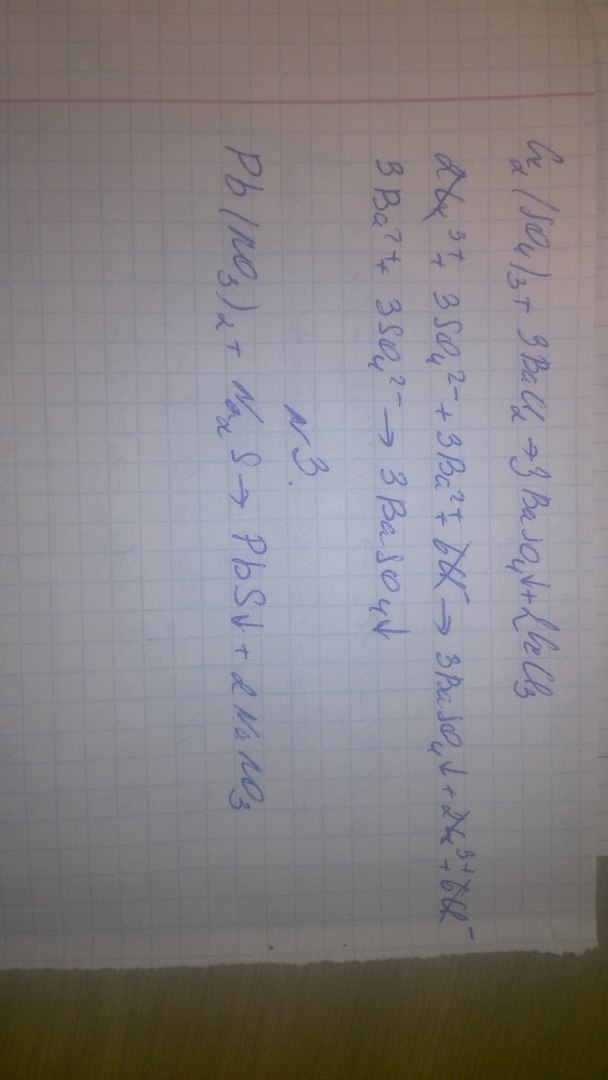 Cr₂(SO₄)₃ + 3BaCl₂ → 3BaSO₄↓ + 2CrCl₃
2Cr³⁺ + 3SO₄²⁻ + 3Ba²⁺ + 6Cl⁻ → 3BaSO₄↓ + 2Cr³⁺ + 6Cl⁻
3Ba²⁺ + 3SO₄²⁻ → 3BaSO₄↓
N3.
Pb(NO₃)₂ + Na₂S → PbS↓ + 2NaNO₃